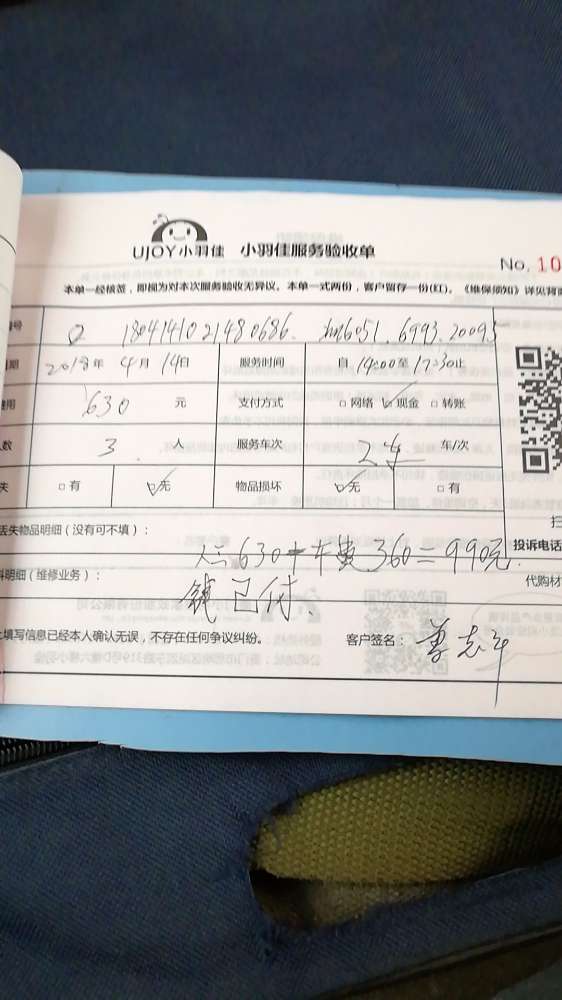 UJOY小羽佳 小羽佳服务验收单
No. 10
本单一经核签，即视为对本次服务验收无异议。本单一式两份，客户留存一份(红)。《维保须知》详见背面
号 1804141021480686. 6051.6993.20095
期 2018年 4月 14日 服务时间 自 14:00至 17:30止
用 630 元 支付方式 □网络 ☑现金 □转账
人数 3 人 服务车次 2车 车/次
失 □有 ☑无 物品损坏 ☑无 □有
丢失物品明细（没有可不填）：
人工630+车费360=990元
投诉电话
料明细（维修业务）：
钱已付
代购材
填写信息已经本人确认无误，不存在任何争议纠纷。 客户签名：